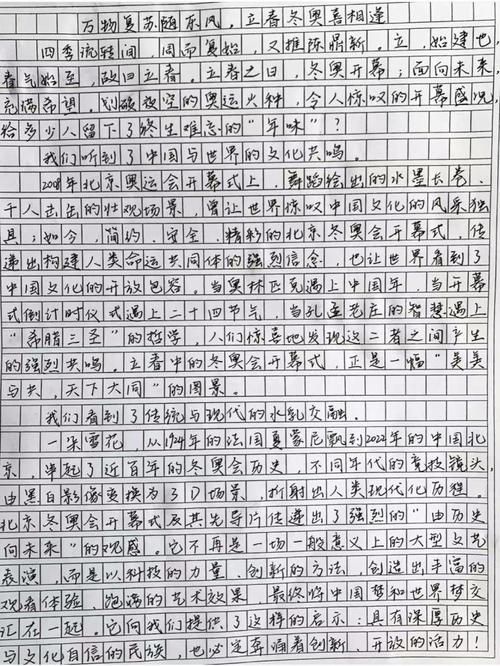 万物复苏随东风，立春冬奥喜相逢
四季流转间，周而复始，又推陈鼎新。立，始建也，
春气始至，故曰立春。立春之日，冬奥开幕；面向未来，
充满希望。划破夜空的奥运火种，令人惊叹的开幕盛况，
给多少人留下了终生难忘的“年味”？
我们听到了中国与世界的文化共鸣。
2008年北京奥运会开幕式上，舞蹈绘出的水墨长卷、
千人击缶的壮观场景，曾让世界惊叹中国文化的风采独
具；如今，简约、安全、精彩的北京冬奥会开幕式，传
递出构建人类命运共同体的强烈信念，也让世界看到了
中国文化的开放包容。当奥林匹克遇上中国年，当开幕
式倒计时仪式遇上二十四节气，当孔孟老庄的智慧遇上
“希腊三圣”的哲学，人们惊喜地发现这二者之间产生
的强烈共鸣。立春中的冬奥会开幕式，正是一幅“美美
与共，天下大同”的图景。
我们看到了传统与现代的水乳交融。
一朵雪花，从1924年的法国夏蒙尼飘到2022年的中国北
京，串起了近百年的冬奥会历史，不同年代的竞技镜头，
由黑白影像变换为3D场景，折射出人类现代化历程。
北京冬奥会开幕式及其先导片传递出了强烈的“由历史
向未来”的观感。它不再是一场一般意义上的大型文艺
表演，而是以科技的力量、创新的方法，创造出丰富的
观看体验、饱满的艺术效果，最终将中国梦和世界梦交
汇在一起。它向我们提供了这样的启示：具有深厚历史
与文化自信的民族，也必定奔涌着创新、开放的活力！